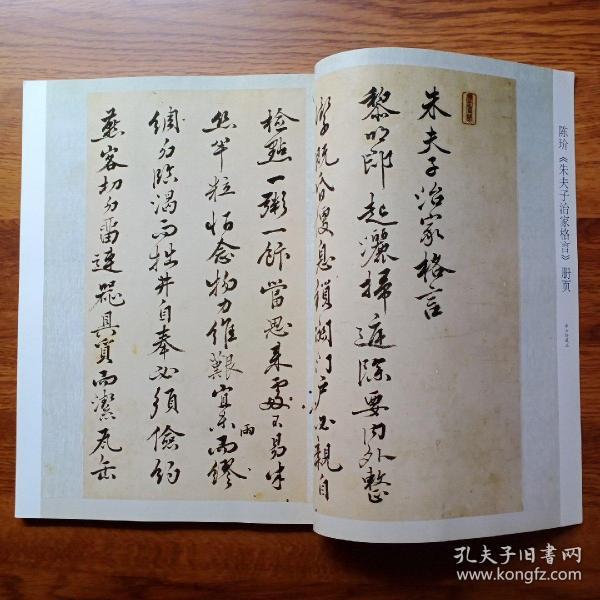 陈玠《朱夫子治家格言》册页
朱夫子治家格言
黎明即起灑掃庭除要内外整
潔既昏便息鎖關门户必親自
檢點一粥一飯當思來處不易半
丝半粒恒念物力維艱宜未雨而繆
綢勿臨渴而掘井自奉必須儉約
燕客切勿留連器具質而潔瓦缶
孔夫子旧书网
www.kongfz.com